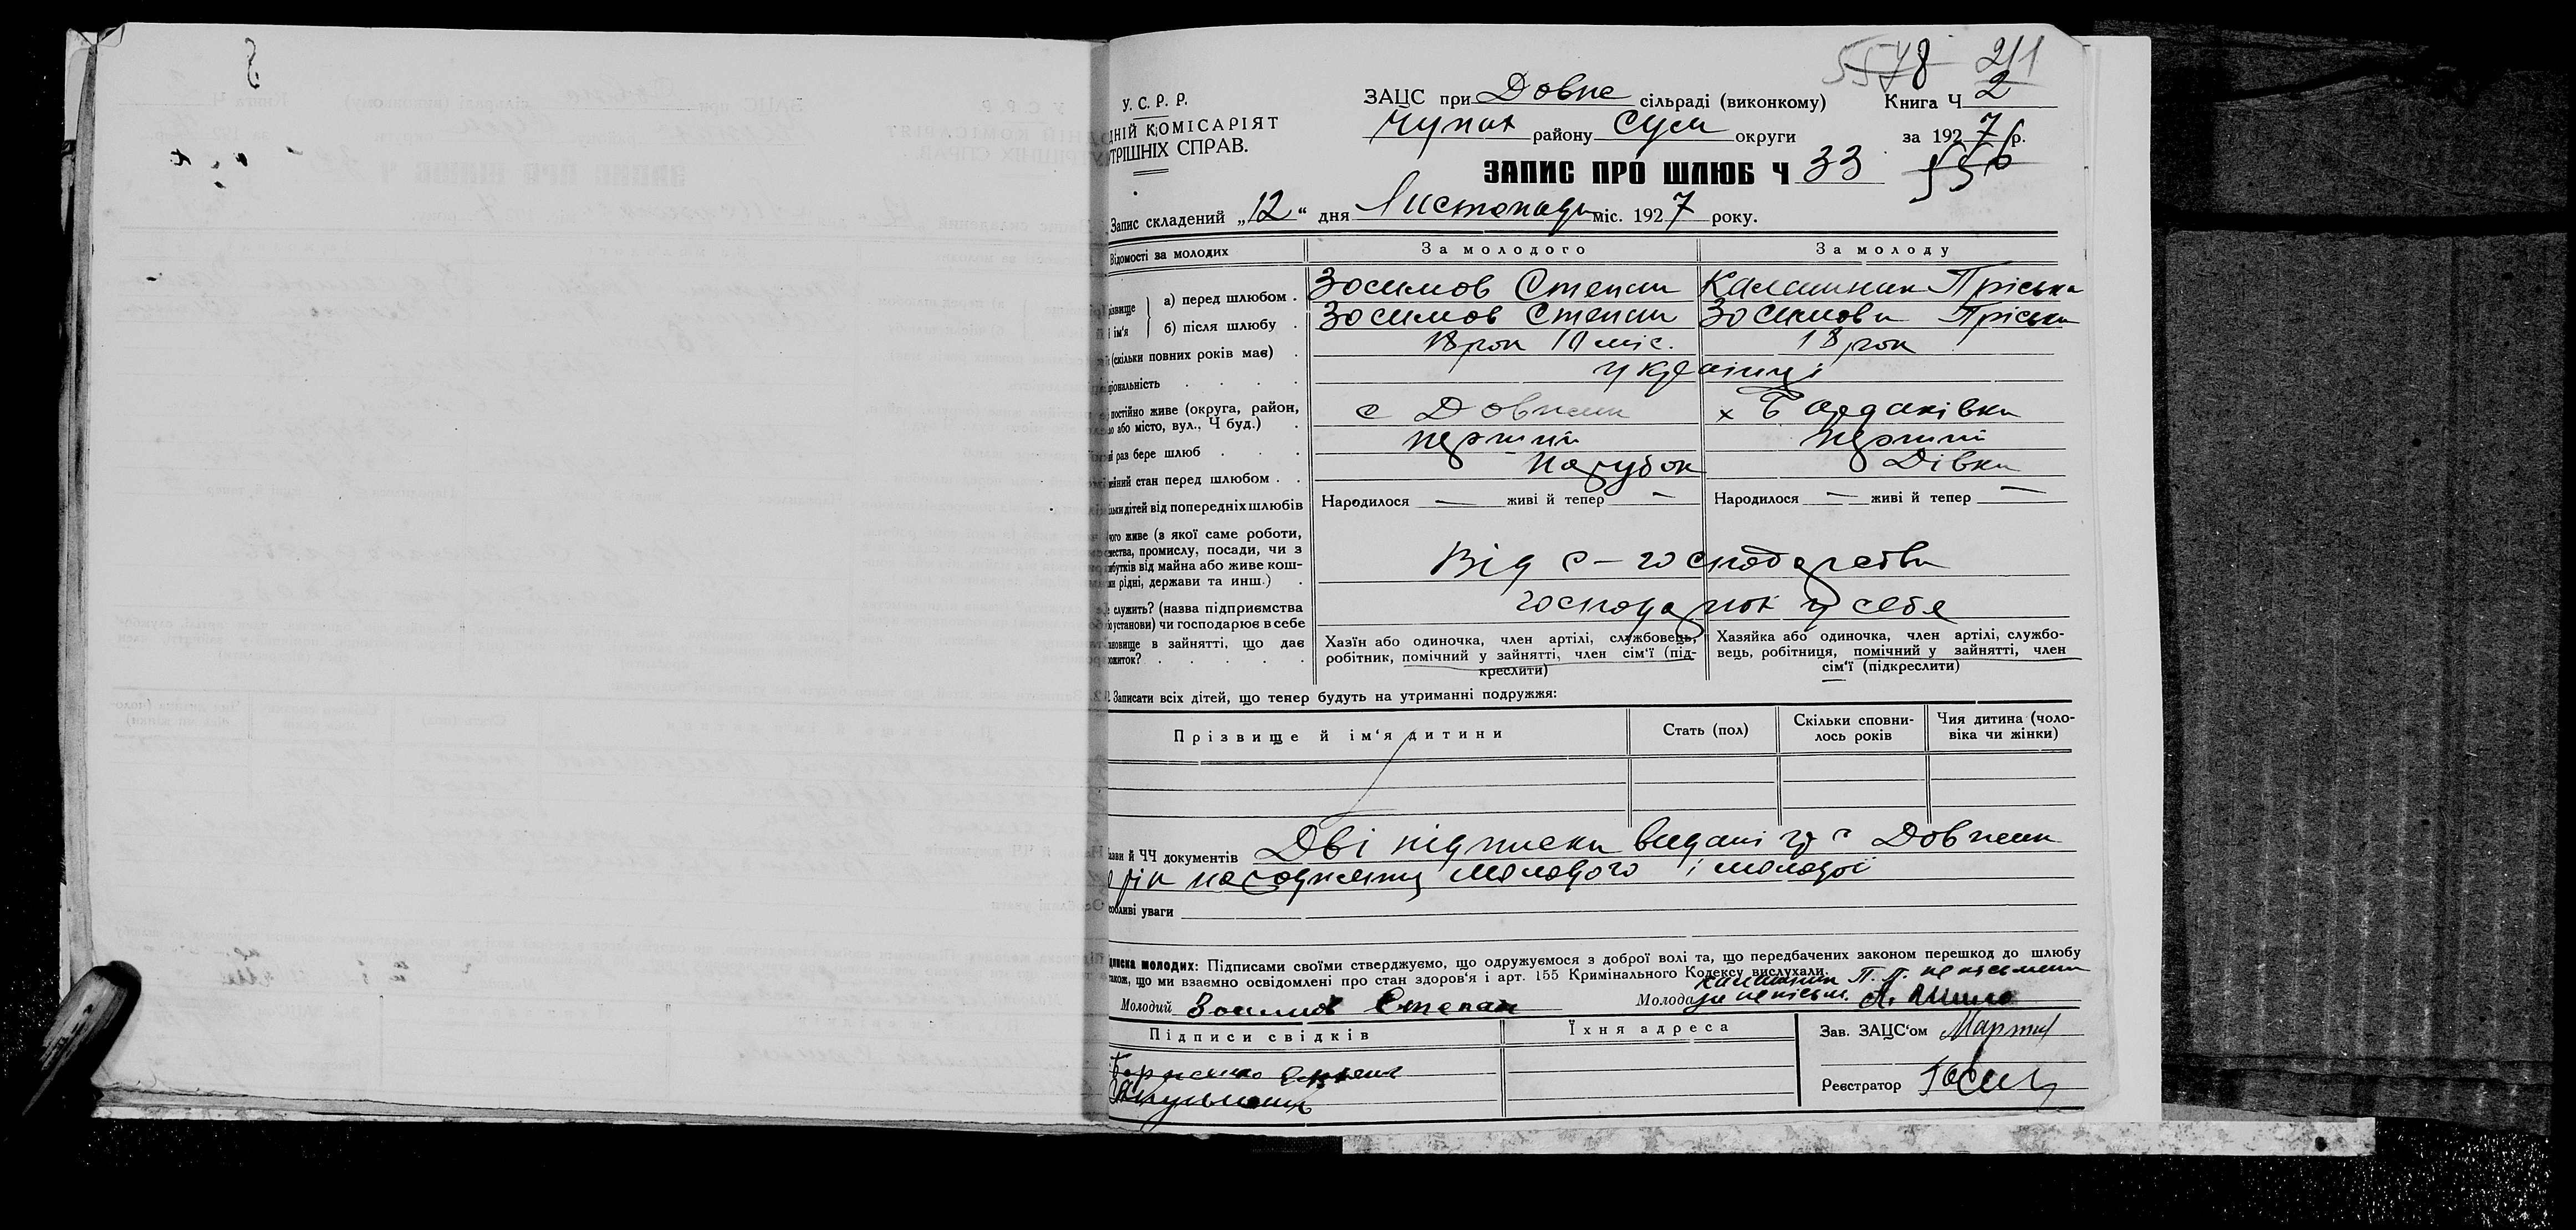 5578 211
У. С. Р. Р.
ДНІЙ КОМІСАРІЯТ
ТРІШНІХ СПРАВ.
ЗАЦС при Довпе сільраді (виконкому) Книга Ч 2
Чупах району Сум округи за 1927 р.
ЗАПИС ПРО ШЛЮБ Ч 33 556
Запис складений „12“ дня Листопада міс. 1927 року.
Відомості за молодих За молодого За молоду
різвище і ім'я а) перед шлюбом . Зосимов Степан Калашник Пріська
б) після шлюбу . Зосимов Степан Зосимова Пріська
(скільки повних років має) . 18 рок 10 міс. 18 рок
ціональність . . . . українці
постійно живе (округа, район, с Довпели х Бардаківка
або місто, вул., Ч буд.) .
раз бере шлюб . . . перший перший
стан перед шлюбом . . Парубок Дівка
дітей від попередніх шлюбів Народилося — живі й тепер — Народилося — живі й тепер —
чого живе (з якої саме роботи,
промислу, посади, чи з
від майна або живе кош-
рідні, держави та инш.) . Від с-господарства
служить? (назва підприємства
установи) чи господарює в себе господарює у себе
в зайнятті, що дає
Хазїн або одиночка, член артілі, службовець, робітник, помічний у зайнятті, член сім'ї (підкреслити)
Хазяйка або одиночка, член артілі, службовець, робітниця, помічний у зайнятті, член сім'ї (підкреслити)
Записати всіх дітей, що тепер будуть на утриманні подружжя:
Прізвище й ім'я дитини Стать (пол) Скільки сповнилось років Чия дитина (чоловіка чи жінки)
й ЧЧ документів Дві підписки видані
рік народження молодого і молодої
уваги
молодих: Підписами своїми стверджуємо, що одружуємося з доброї волі та, що передбачених законом перешкод до шлюбу
що ми взаємно освідомлені про стан здоров'я і арт. 155 Кримінального Кодексу вислухали.
Калашник П. П. неписьменн
Молодий Зосимов Степан Молода за неписьм.
Підписи свідків Їхня адреса Зав. ЗАЦС'ом
Реєстратор